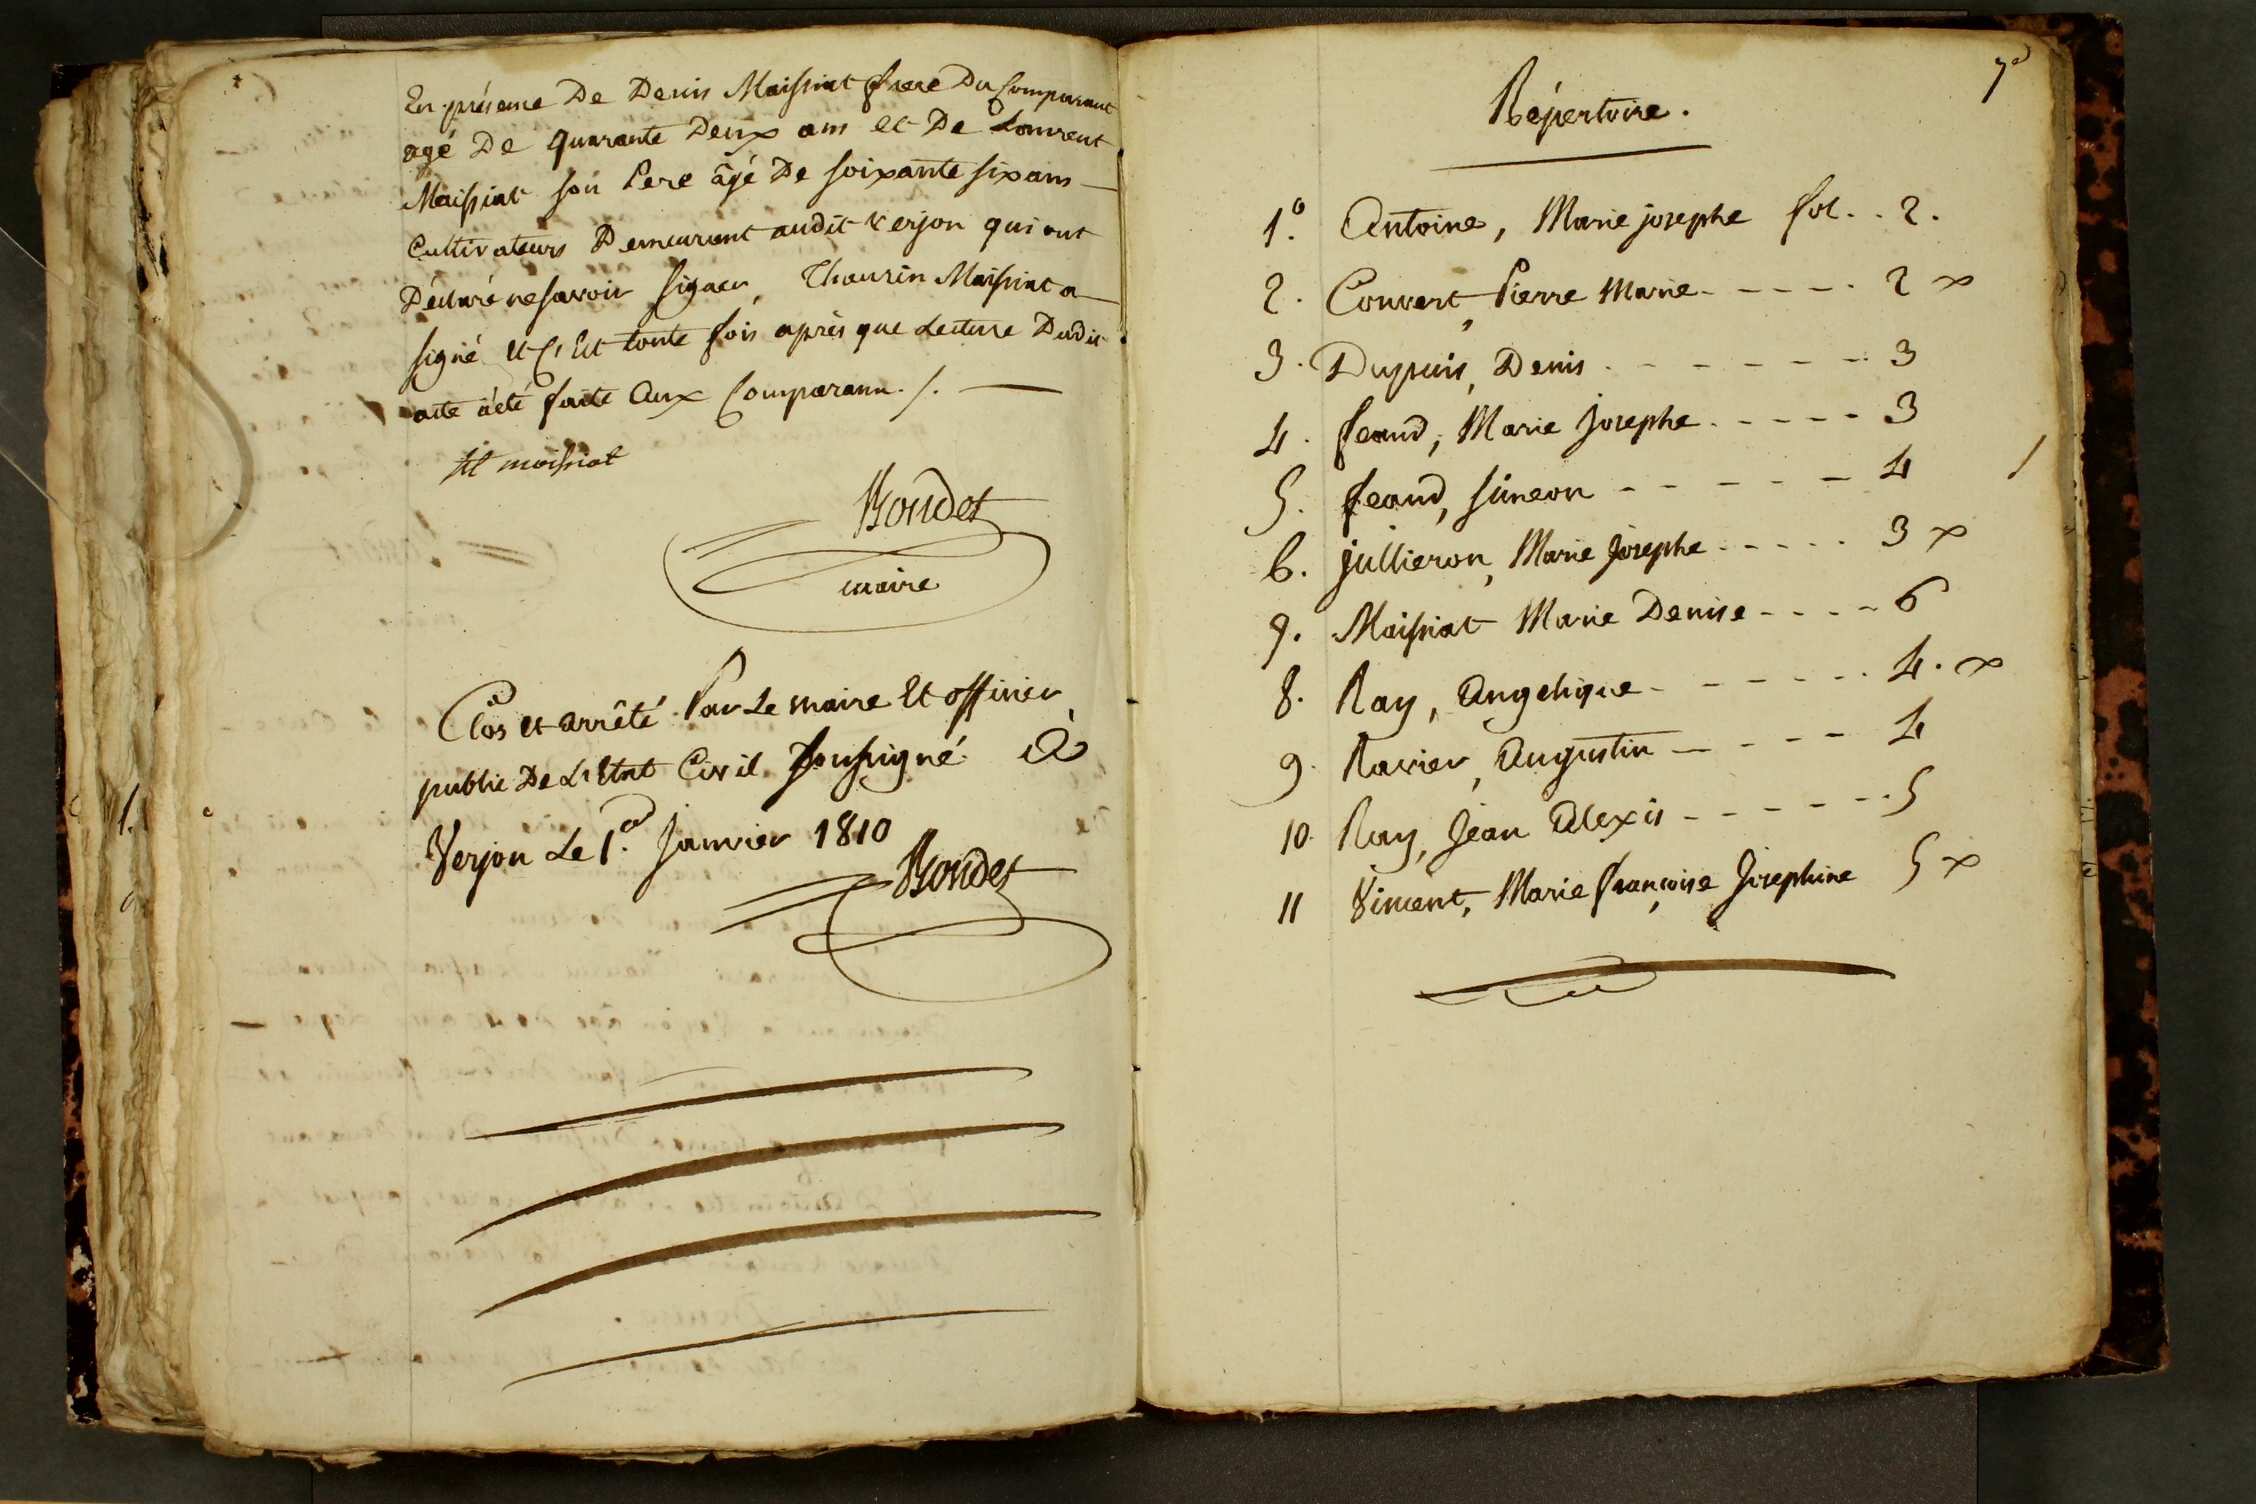 En présence De Denis Maissiat frere Du Comparant
agé De Quarante Deux ans et De Laurent
Maissiat son Pere âgé De soixante six ans
Cultivateurs Demeurant audit Verjon qui ont
Déclaré ne savoir signer, Thaurin Maissiat a
signé et C'Est toute fois après que Lecture Dudit
acte à été faite Aux Comparans ./.
tt maissiat
Boudet
maire
Clos et arrêté Par Le maire Et officier
public De L'Etat Civil soussigné À
Verjon Le 1.er Janvier 1810
Boudet
7e
Répertoire.
1.º Antoine, Marie josephe fol. . 2.
2. Convert, Pierre Marie - - - - - 2 x
3. Dupuis, Denis - - - - - - - 3
4. feaud, Marie Josephe - - - - - 3
5. feaud, simeon - - - - - - 4
6. jullieron, Marie Josephe - - - - - 3 x
7. Maissiat Marie Denise - - - - 6
8. Ray, Angelique - - - - - - 4. x
9. Ravier, Augustin - - - - - 4
10. Ray, Jean Alexis - - - - - - - 5
11 Vincent, Marie françoise Josephine 5 x